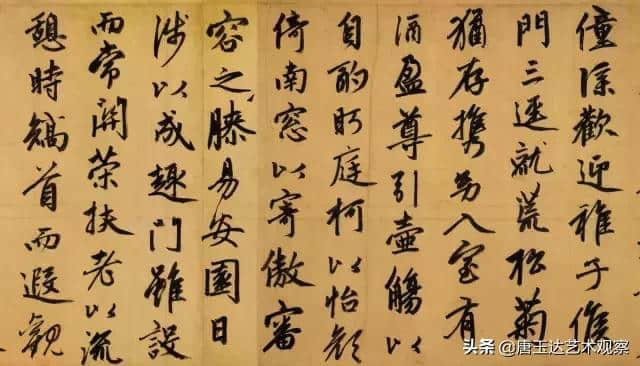 僮僕歡迎稚子候
門三逕就荒松菊
猶存携幼入室有
酒盈尊引壺觴以
自酌眄庭柯以怡顔
倚南窓以寄傲審
容之膝易安園日
涉以成趣門雖設
而常關策扶老以流
憩時矯首而遐觀
头条 @唐玉达艺术观察